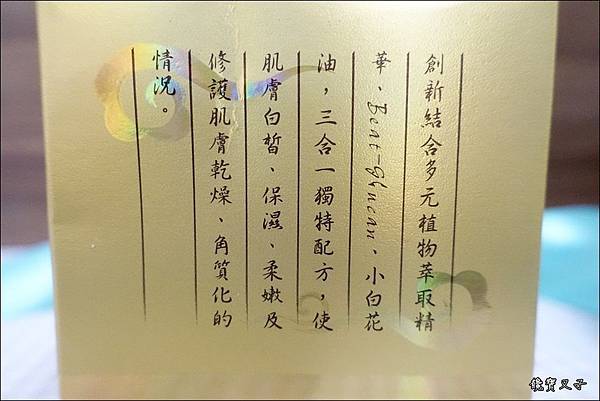 創新結合多元植物萃取精
華、Beat-Glucan、小白花
油，三合一獨特配方，使
肌膚白皙、保濕、柔嫩及
修護肌膚乾燥、角質化的
情況。